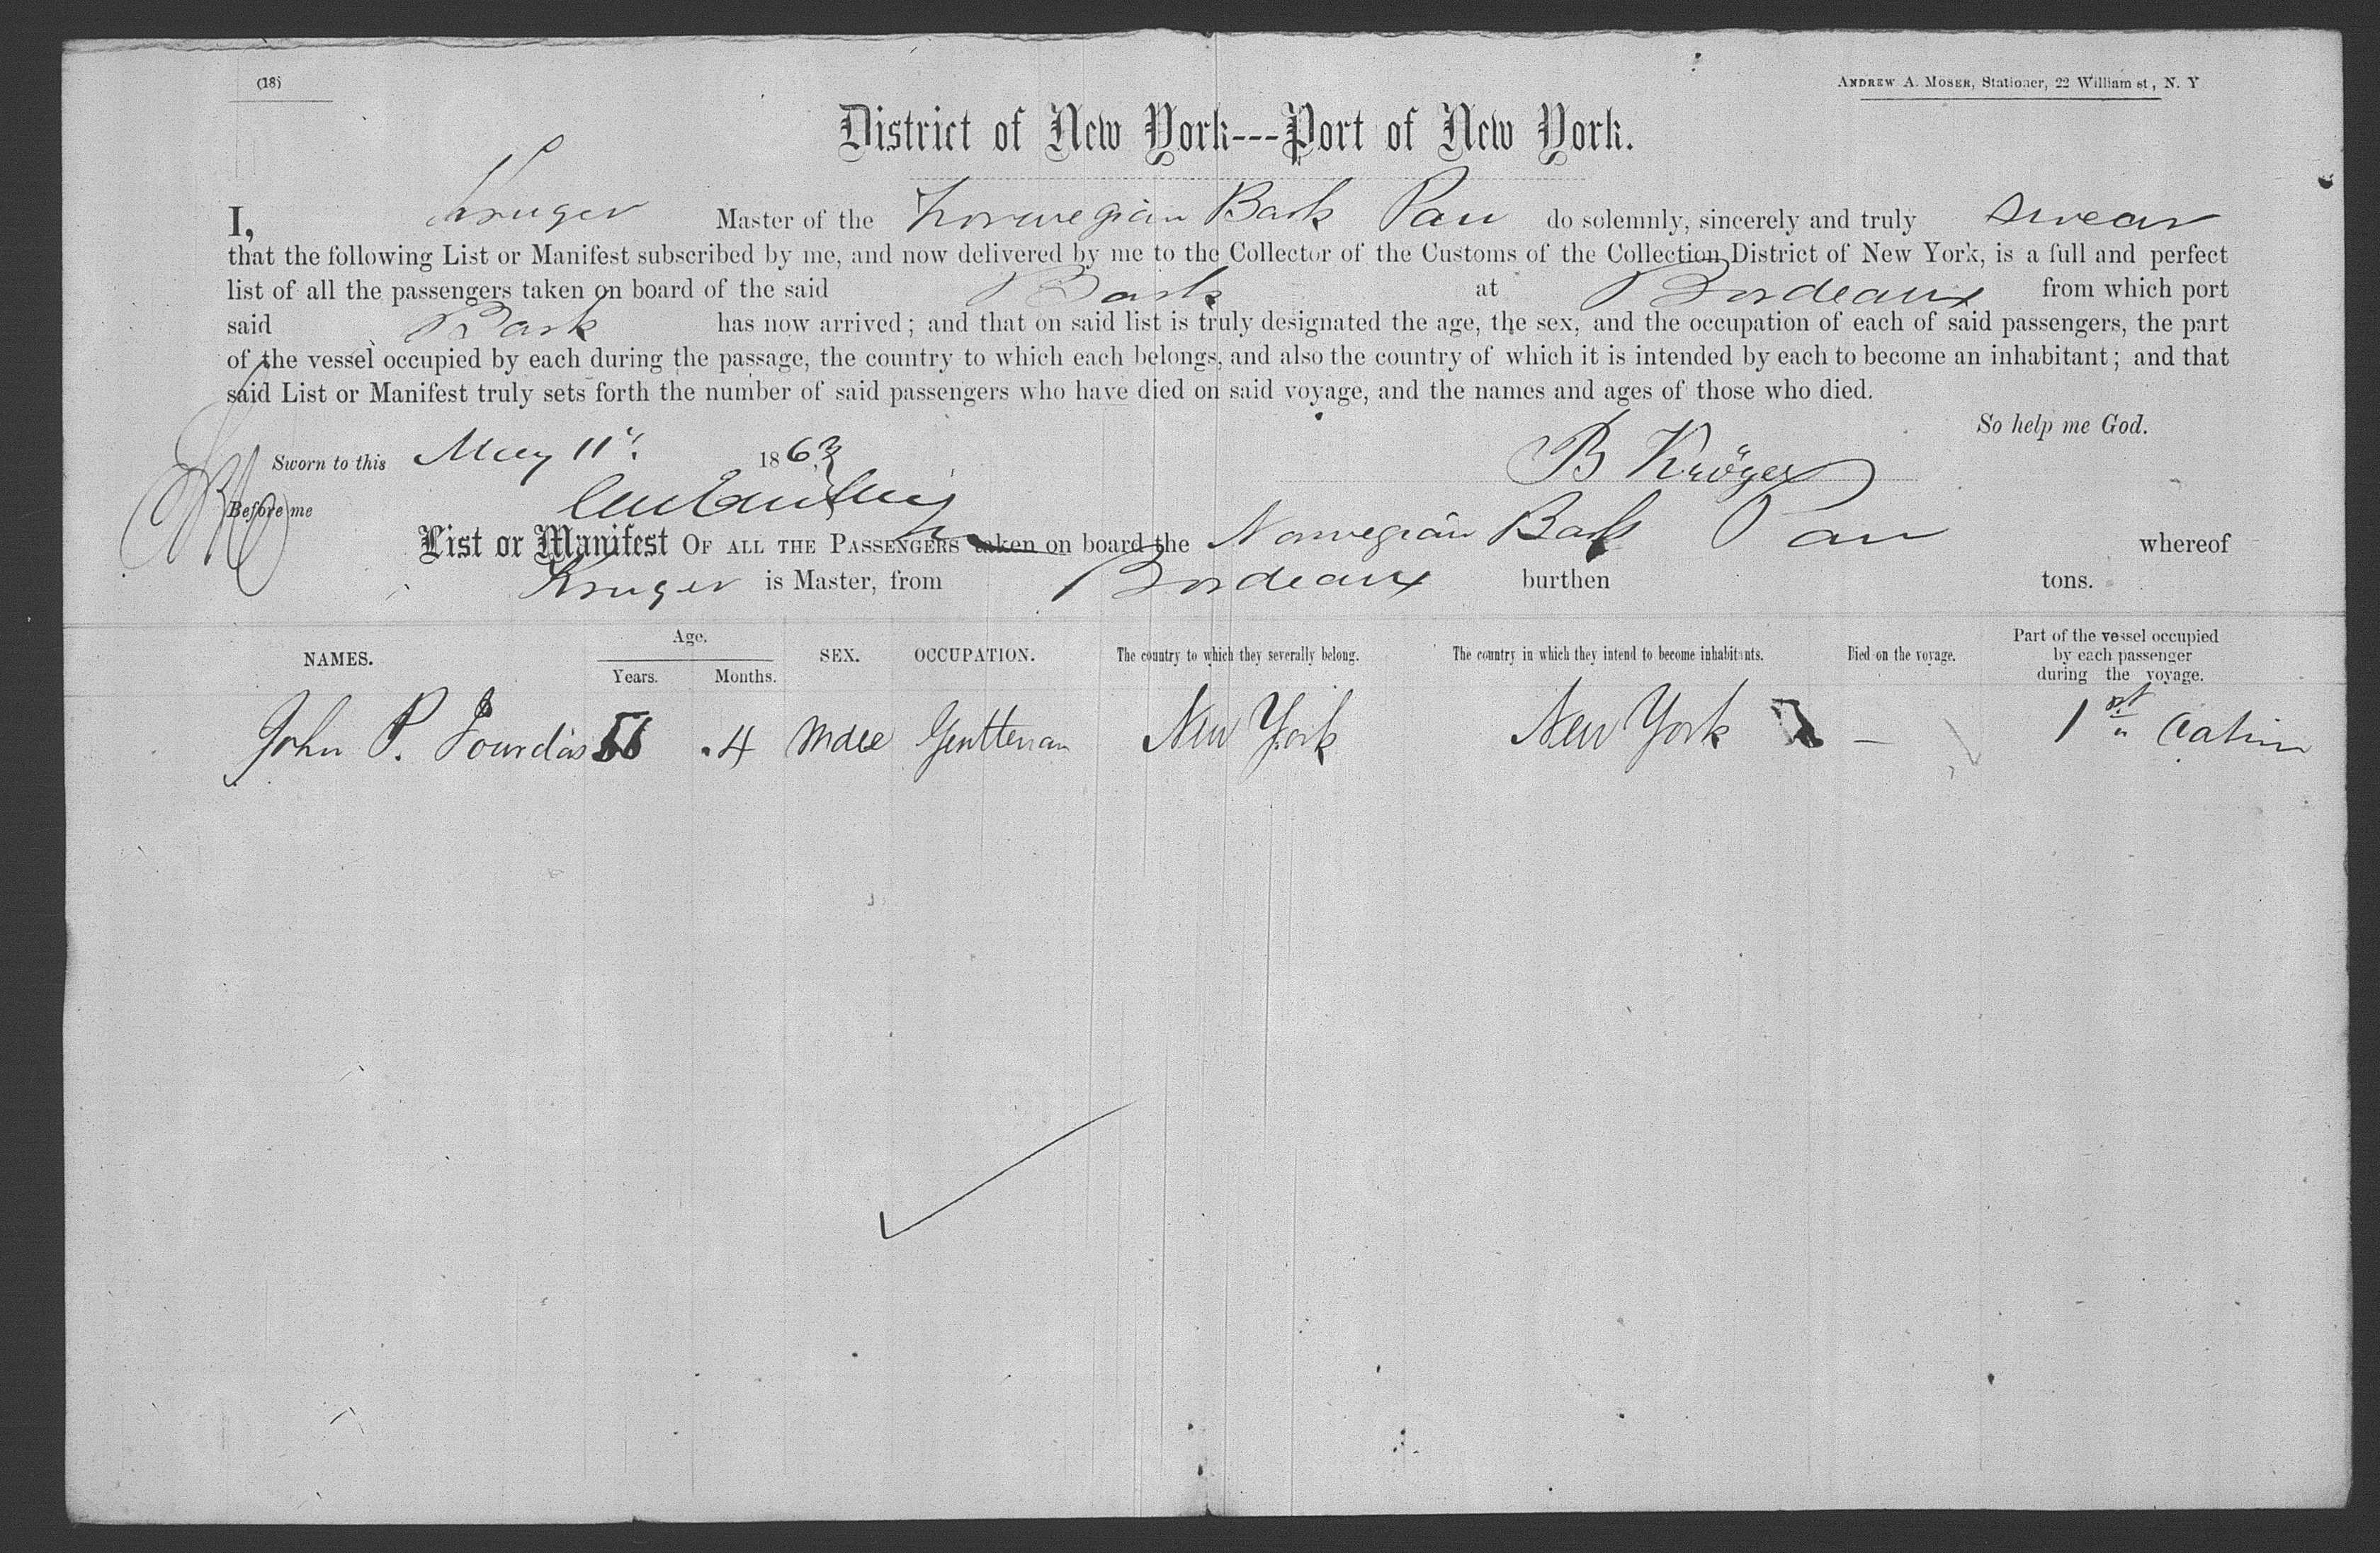 (18)
ANDREW A. MOSER, Stationer, 22 William st, N. Y
District of New York---Port of New York.
I, Kruger Master of the Norwegian Bark Pau do solemnly, sincerely and truly swear
that the following List or Manifest subscribed by me, and now delivered by me to the Collector of the Customs of the Collection District of New York, is a full and perfect
list of all the passengers taken on board of the said Bark at Bordeaux from which port
said Bark has now arrived; and that on said list is truly designated the age, the sex, and the occupation of each of said passengers, the part
of the vessel occupied by each during the passage, the country to which each belongs, and also the country of which it is intended by each to become an inhabitant; and that
said List or Manifest truly sets forth the number of said passengers who have died on said voyage, and the names and ages of those who died.
So help me God.
Sworn to this May 11" 1863
B Kröger
Before me
List or Manifest OF ALL THE PASSENGERS taken on board the Norwegian Bark Pau whereof
Kruger is Master, from Bordeaux burthen tons.
NAMES. Age. Years. Months. SEX. OCCUPATION. The country to which they severally belong. The country in which they intend to become inhabitants. Died on the voyage. Part of the vessel occupied by each passenger during the voyage.
John P. 4 Male Gentleman New York New York — 1st Cabin